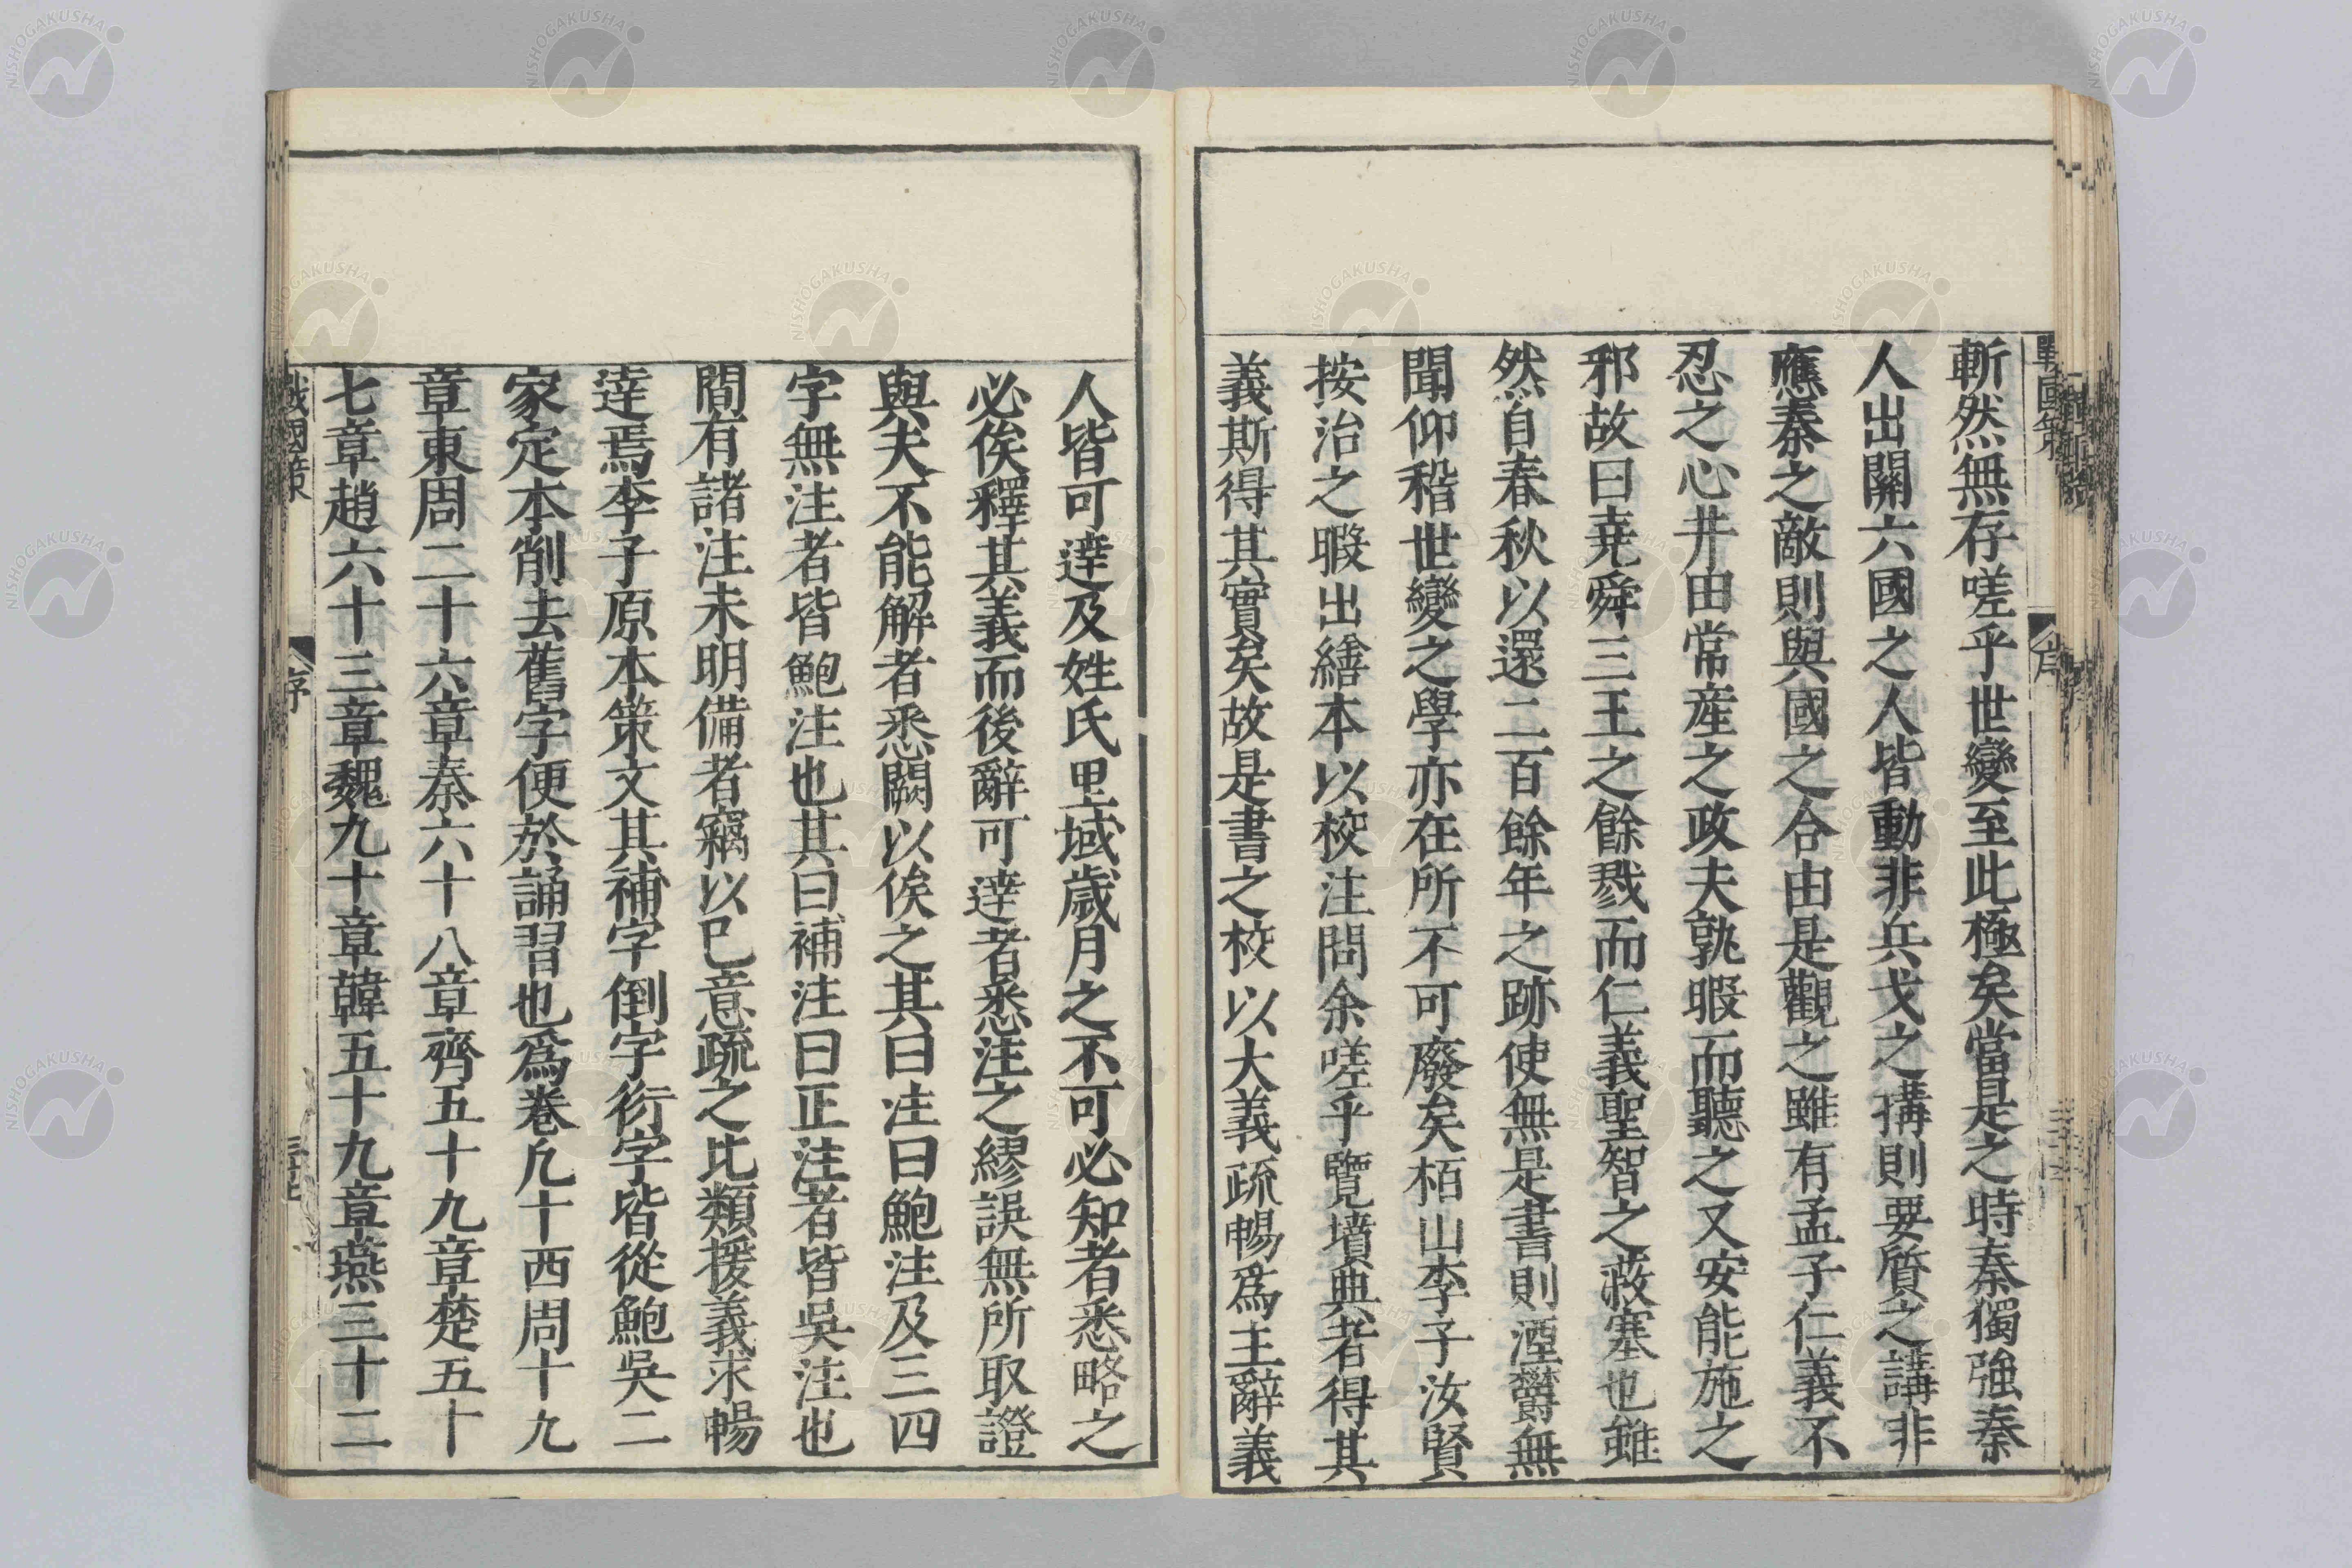 戰國策
序
斬然無存嗟乎世變至此極矣當是之時秦獨強秦
人出關六國之人皆動非兵戈之搆則要質之講非
應秦之敵則與國之合由是觀之雖有孟子仁義不
忍之心井田常産之政夫孰暇而聽之又安能施之
邪故曰堯舜三王之餘戮而仁義聖智之蔽塞也雖
然自春秋以還二百餘年之跡使無是書則湮欝無
聞仰稽世變之學亦在所不可廢矣栢山李子汝賢
按治之暇出繕本以校注問余嗟乎覽墳典者得其
義斯得其實矣故是書之校以大義疏暢爲主辭義
人皆可達及姓氏里域歲月之不可必知者悉略之
必俟釋其義而後辭可達者悉注之繆誤無所取證
與夫不能解者悉闕以俟之其曰注曰鮑注及三四
字無注者皆鮑注也其曰補注曰正注者皆吳注也
間有諸注未明備者竊以己意疏之比類援義求暢
達焉李子原本策文其補字倒字衍字皆從鮑吳二
家定本削去舊字便於誦習也爲卷凢十西周十九
章東周二十六章秦六十八章齊五十九章楚五十
七章趙六十三章魏九十章韓五十九章燕三十二
戰國策
序
NISHOGAKUSHA